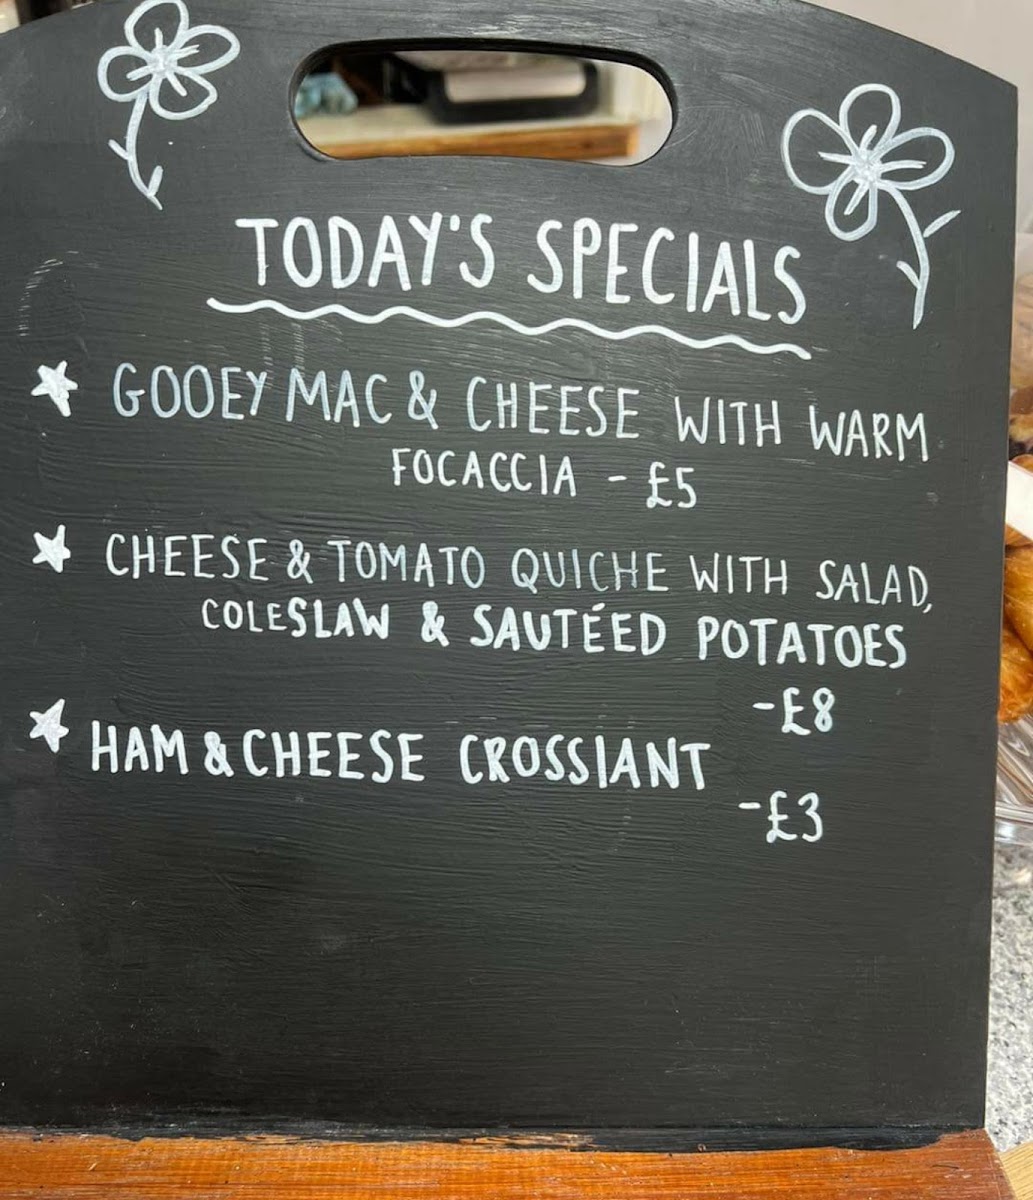 TODAY'S SPECIALS
GOOEY MAC & CHEESE WITH WARM
FOCACCIA - £5
CHEESE & TOMATO QUICHE WITH SALAD,
COLESLAW & SAUTÉED POTATOES
-£8
HAM & CHEESE CROSSIANT
-£3